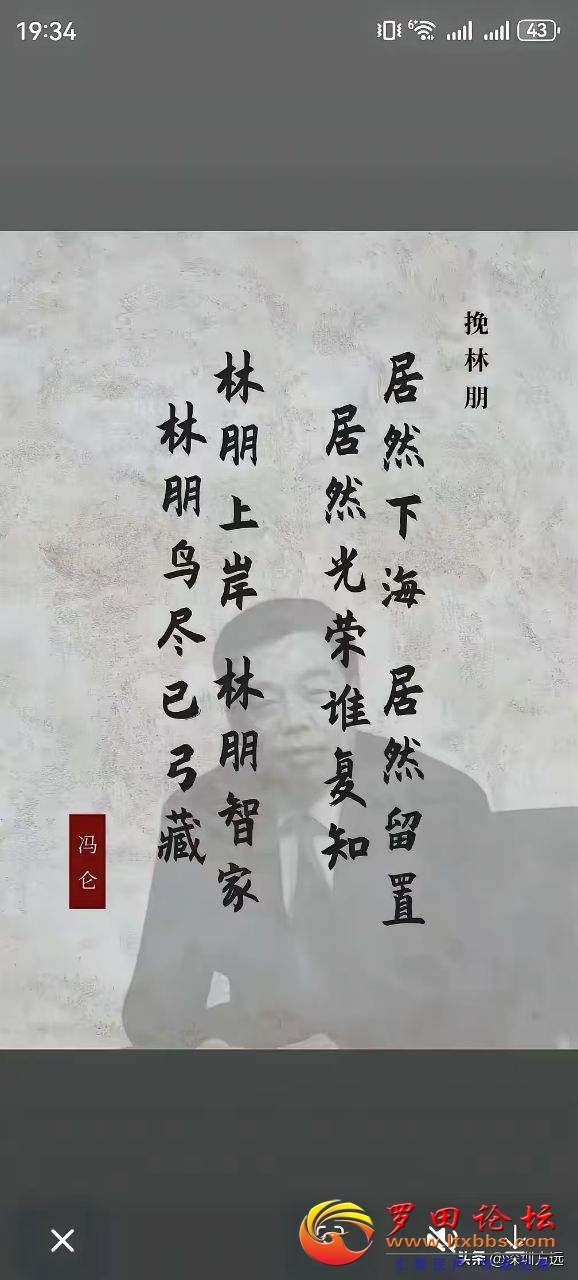 19:34
6+
43
挽林朋
居然下海 居然留置
居然光荣谁复知
林朋上岸 林朋智家
林朋鸟尽已弓藏
冯仑
罗田论坛
www.ltxbbs.com
头条 @深圳方远